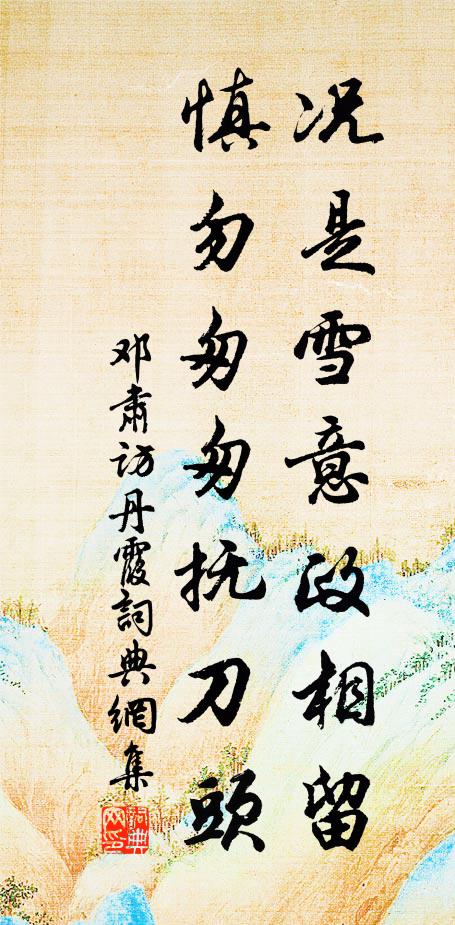 况是雪意政相留
慎勿匆匆抚刀頭
邓肃访丹霞詞典網集
詞典
网印